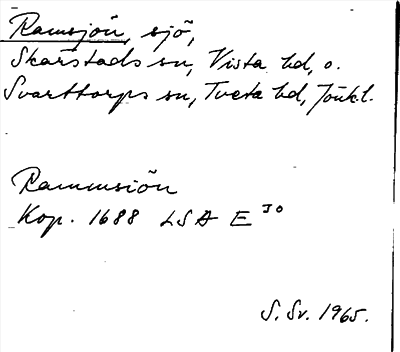 Ramsjön, sjö,
Skärstads sn, Vista hd, o.
Svarttorps sn, Tveta hd, Jönk.l.
Rammsiön
Kop. 1688 LSA E 30
S. Sv. 1965.